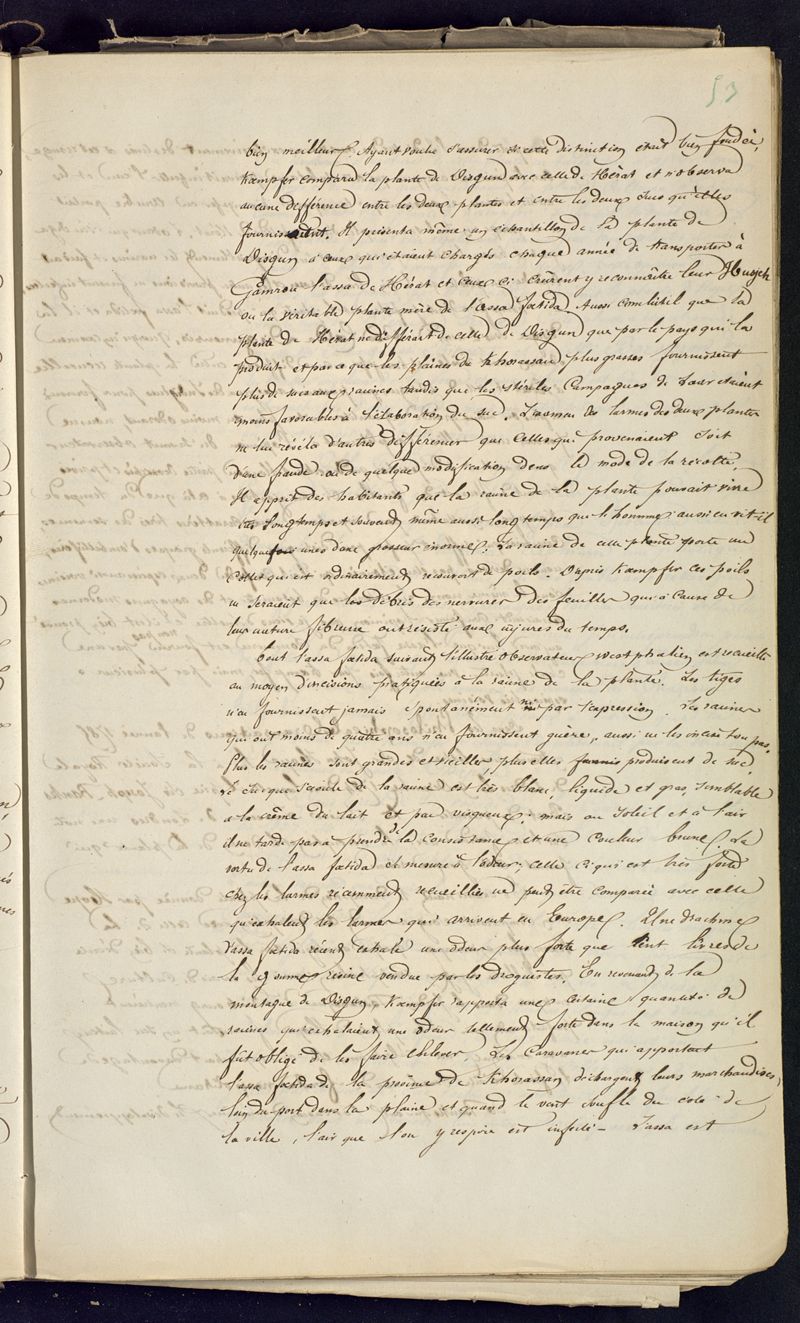 53
bien meilleur. Ayant voulu s'assurer si cette distinction était bien fondée,
Kæmpfer compara la plante de Disgun avec celle de Hérat et n'observa
aucune différence entre les deux plantes et entre les deux sucs qu'elles
fournissaient. Il présenta même un échantillon de la plante de
Disgun à ceux qui étaient chargés chaque année de transporter à
Gamron l'assa de Hérat et ceux ci crûrent y reconnaître leur Hingseh
ou la véritable plante mère de l'Assa fœtida. Aussi conclut-il que la
plante de Hérat ne différait de celle de Disgun que par le pays qui la
produit et parce que les plaines du Khorassan plus grasses fournissent
plus de suc aux racines tandis que les stériles Campagnes de Laar étaient
moins favorables à l'élaboration du suc. L'examen des larmes des deux plantes
ne lui révéla d'autres différences que celles qui provenaient soit
d'une fraude ou de quelque modification dans le mode de la récolte.
Il apprit des habitants que la racine de la plante pouvait vivre
très longtemps et souvent même aussi longtemps que l'homme, aussi en vit-il
quelques unes d'une grosseur énorme. La racine de cette plante porte un
collet qui est ordinairement recouvert de poils. D'après Kæmpfer ces poils
ne seraient que les débris des nervures des feuilles qui à cause de
leur nature fibreuse ont résisté aux injures du temps.
Tout l'assa fœtida suivant l'illustre observateur westphalien est recueilli
au moyen d'incisions pratiquées à la racine de la plante. Les tiges
n'en fournissent jamais spontanément ni par l'expression. Les racines
qui ont moins de quatre ans n'en fournissent guère, aussi ne les incise t'on pas.
Plus les racines sont grandes et vieilles plus elles produisent de suc,
le suc qui s'écoule de la racine est très blanc, liquide et gras, semblable
à la crême du lait et pas visqueux; mais au soleil et à l'air
il ne tarde pas à prendre de la consistance et une couleur brune. La
vertu de l'assa fœtida se mesure à l'odeur; celle ci qui est très forte
chez les larmes récemment recueillies ne peut être comparée avec celle
qu'exhalent les larmes qui arrivent en Europe. Une drachme
d'assa fœtida récent exhale une odeur plus forte que cent livres de
la gomme résine vendue par les droguistes. En revenant de la
montagne de Disgun, Kæmpfer rapporta une certaine quantité de
racines qui exhalaient une odeur tellement forte dans la maison qu'il
fût obligé de les faire enlever. Les caravanes qui apportent
l'assa fœtida de la province de Khorassan déchargent leurs marchandises,
loin du port dans la plaine et quand le vent souffle du coté de
la ville, l'air que l'on y respire est infecté. L'assa est